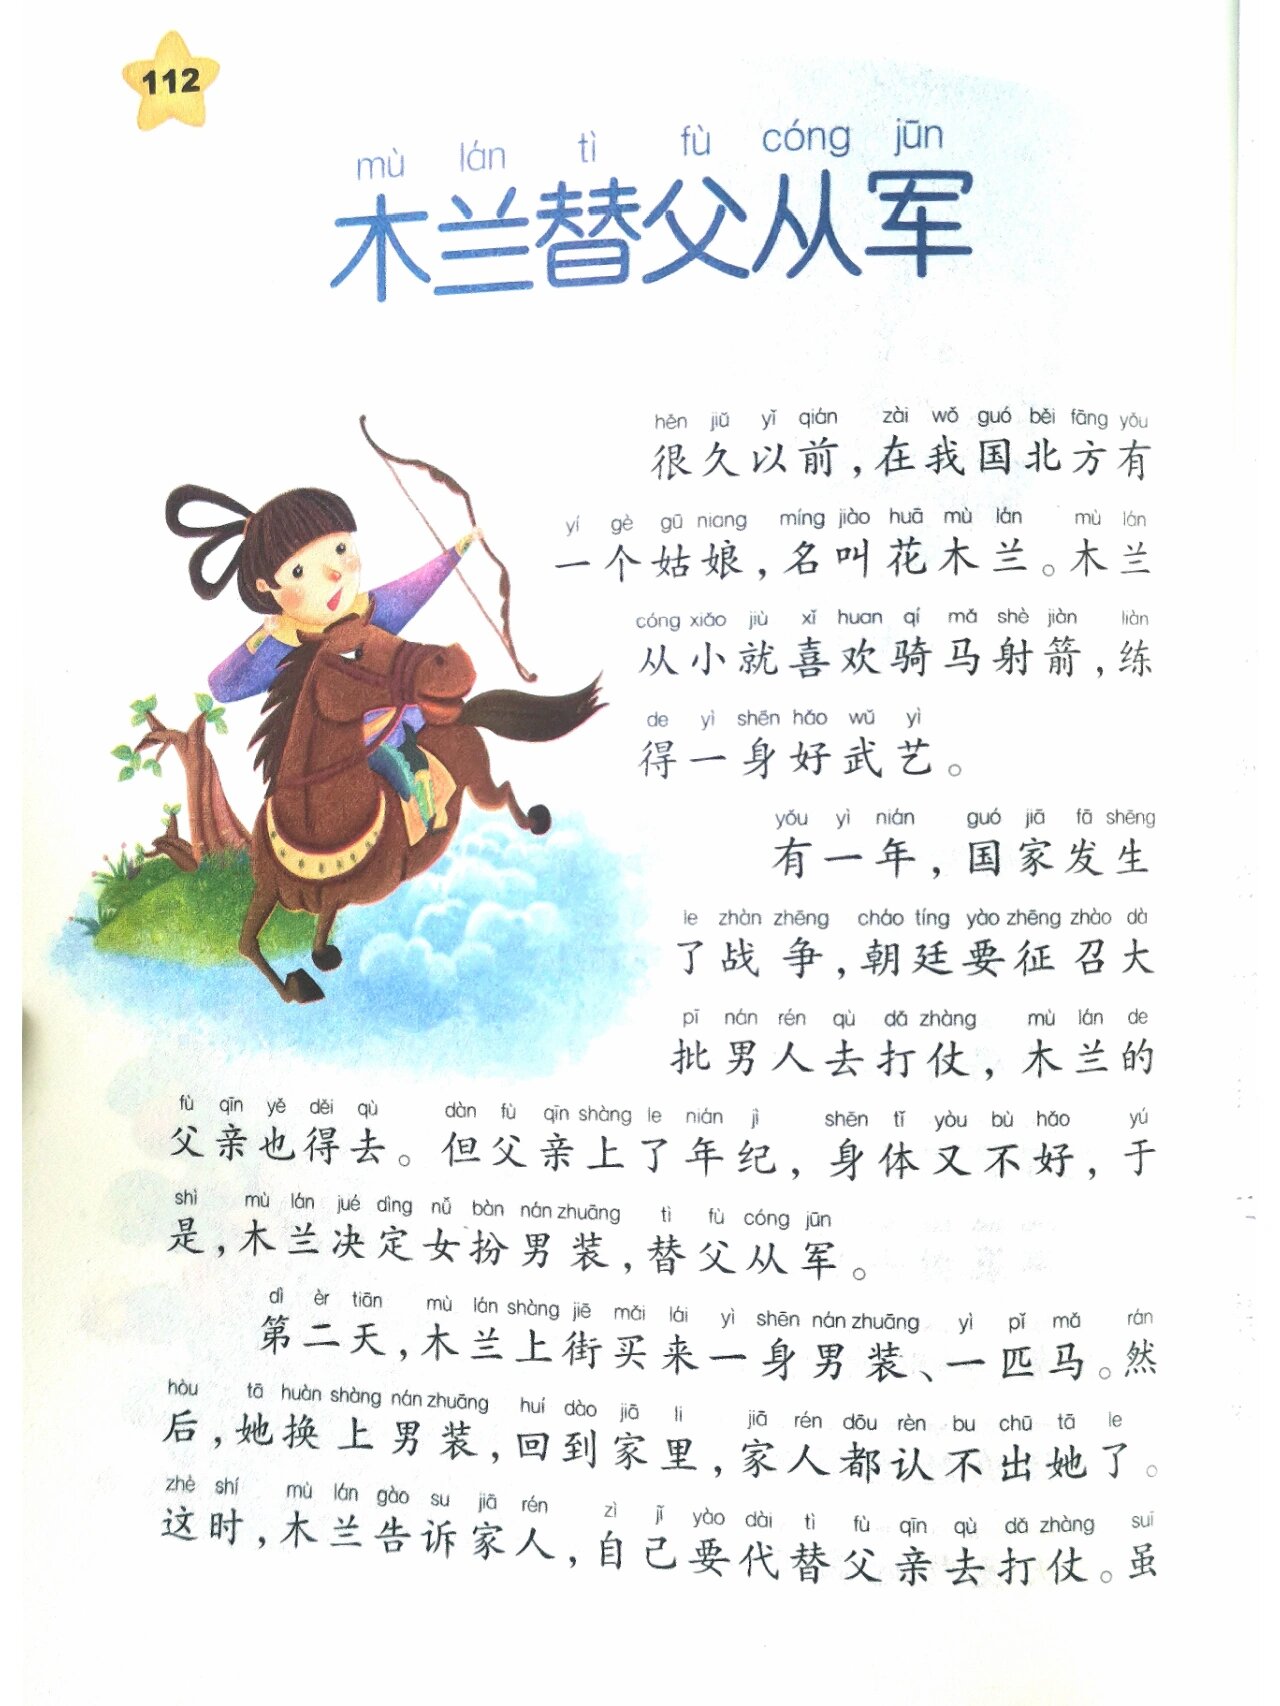 112
mù lán tì fù cóng jūn
木兰替父从军
hěn jiǔ yǐ qián zài wǒ guó běi fāng yǒu
很久以前，在我国北方有
yí gè gū niang míng jiào huā mù lán mù lán
一个姑娘，名叫花木兰。木兰
cóng xiǎo jiù xǐ huan qí mǎ shè jiàn liàn
从小就喜欢骑马射箭，练
de yì shēn hǎo wǔ yì
得一身好武艺。
yǒu yì nián guó jiā fā shēng
有一年，国家发生
le zhàn zhēng cháo tíng yào zhēng zhào dà
了战争，朝廷要征召大
pī nán rén qù dǎ zhàng mù lán de
批男人去打仗，木兰的
fù qīn yě děi qù dàn fù qīn shàng le nián jì shēn tǐ yòu bù hǎo yú
父亲也得去。但父亲上了年纪，身体又不好，于
shì mù lán jué dìng nǚ bàn nán zhuāng tì fù cóng jūn
是，木兰决定女扮男装，替父从军。
dì èr tiān mù lán shàng jiē mǎi lái yì shēn nán zhuāng yì pǐ mǎ rán
第二天，木兰上街买来一身男装、一匹马。然
hòu tā huàn shàng nán zhuāng huí dào jiā li jiā rén dōu rèn bu chū tā le
后，她换上男装，回到家里，家人都认不出她了。
zhè shí mù lán gào su jiā rén zì jǐ yào dài tì fù qīn qù dǎ zhàng suī
这时，木兰告诉家人，自己要代替父亲去打仗。虽